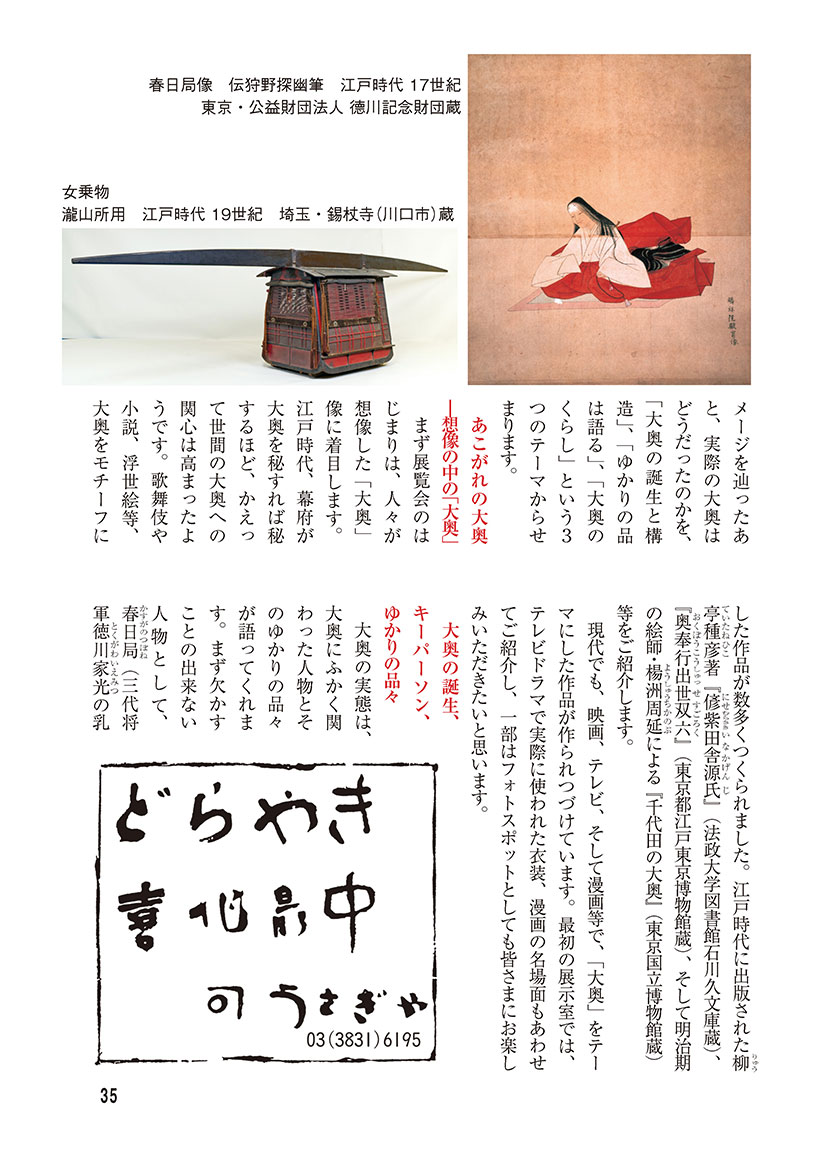 春日局像　伝狩野探幽筆　江戸時代 17世紀
東京・公益財団法人 德川記念財団蔵
女乗物
瀧山所用　江戸時代 19世紀　埼玉・錫杖寺（川口市）蔵
メージを辿ったあ
と、実際の大奥は
どうだったのかを、
「大奥の誕生と構
造」、「ゆかりの品
は語る」、「大奥の
くらし」という３
つのテーマからせ
まります。
あこがれの大奥
―想像の中の「大奥」
まず展覧会のは
じまりは、人々が
想像した「大奥」
像に着目します。
江戸時代、幕府が
大奥を秘すれば秘
するほど、かえっ
て世間の大奥への
関心は高まったよ
うです。歌舞伎や
小説、浮世絵等、
大奥をモチーフに
した作品が数多くつくられました。江戸時代に出版された柳
亭種彦著『偐紫田舎源氏』（法政大学図書館石川久文庫蔵）、
『奥奉行出世双六』（東京都江戸東京博物館蔵）、そして明治期
の絵師・楊洲周延による『千代田の大奥』（東京国立博物館蔵）
等をご紹介します。
現代でも、映画、テレビ、そして漫画等で、「大奥」をテー
マにした作品が作られつづけています。最初の展示室では、
テレビドラマで実際に使われた衣装、漫画の名場面もあわせ
てご紹介し、一部はフォトスポットとしても皆さまにお楽し
みいただきたいと思います。
大奥の誕生、
キーパーソン、
ゆかりの品々
大奥の実態は、
大奥にふかく関
わった人物とそ
のゆかりの品々
が語ってくれま
す。まず欠かす
ことの出来ない
人物として、
春日局（三代将
軍徳川家光の乳
どらやき
喜作最中
の うさぎや
03(3831)6195
35